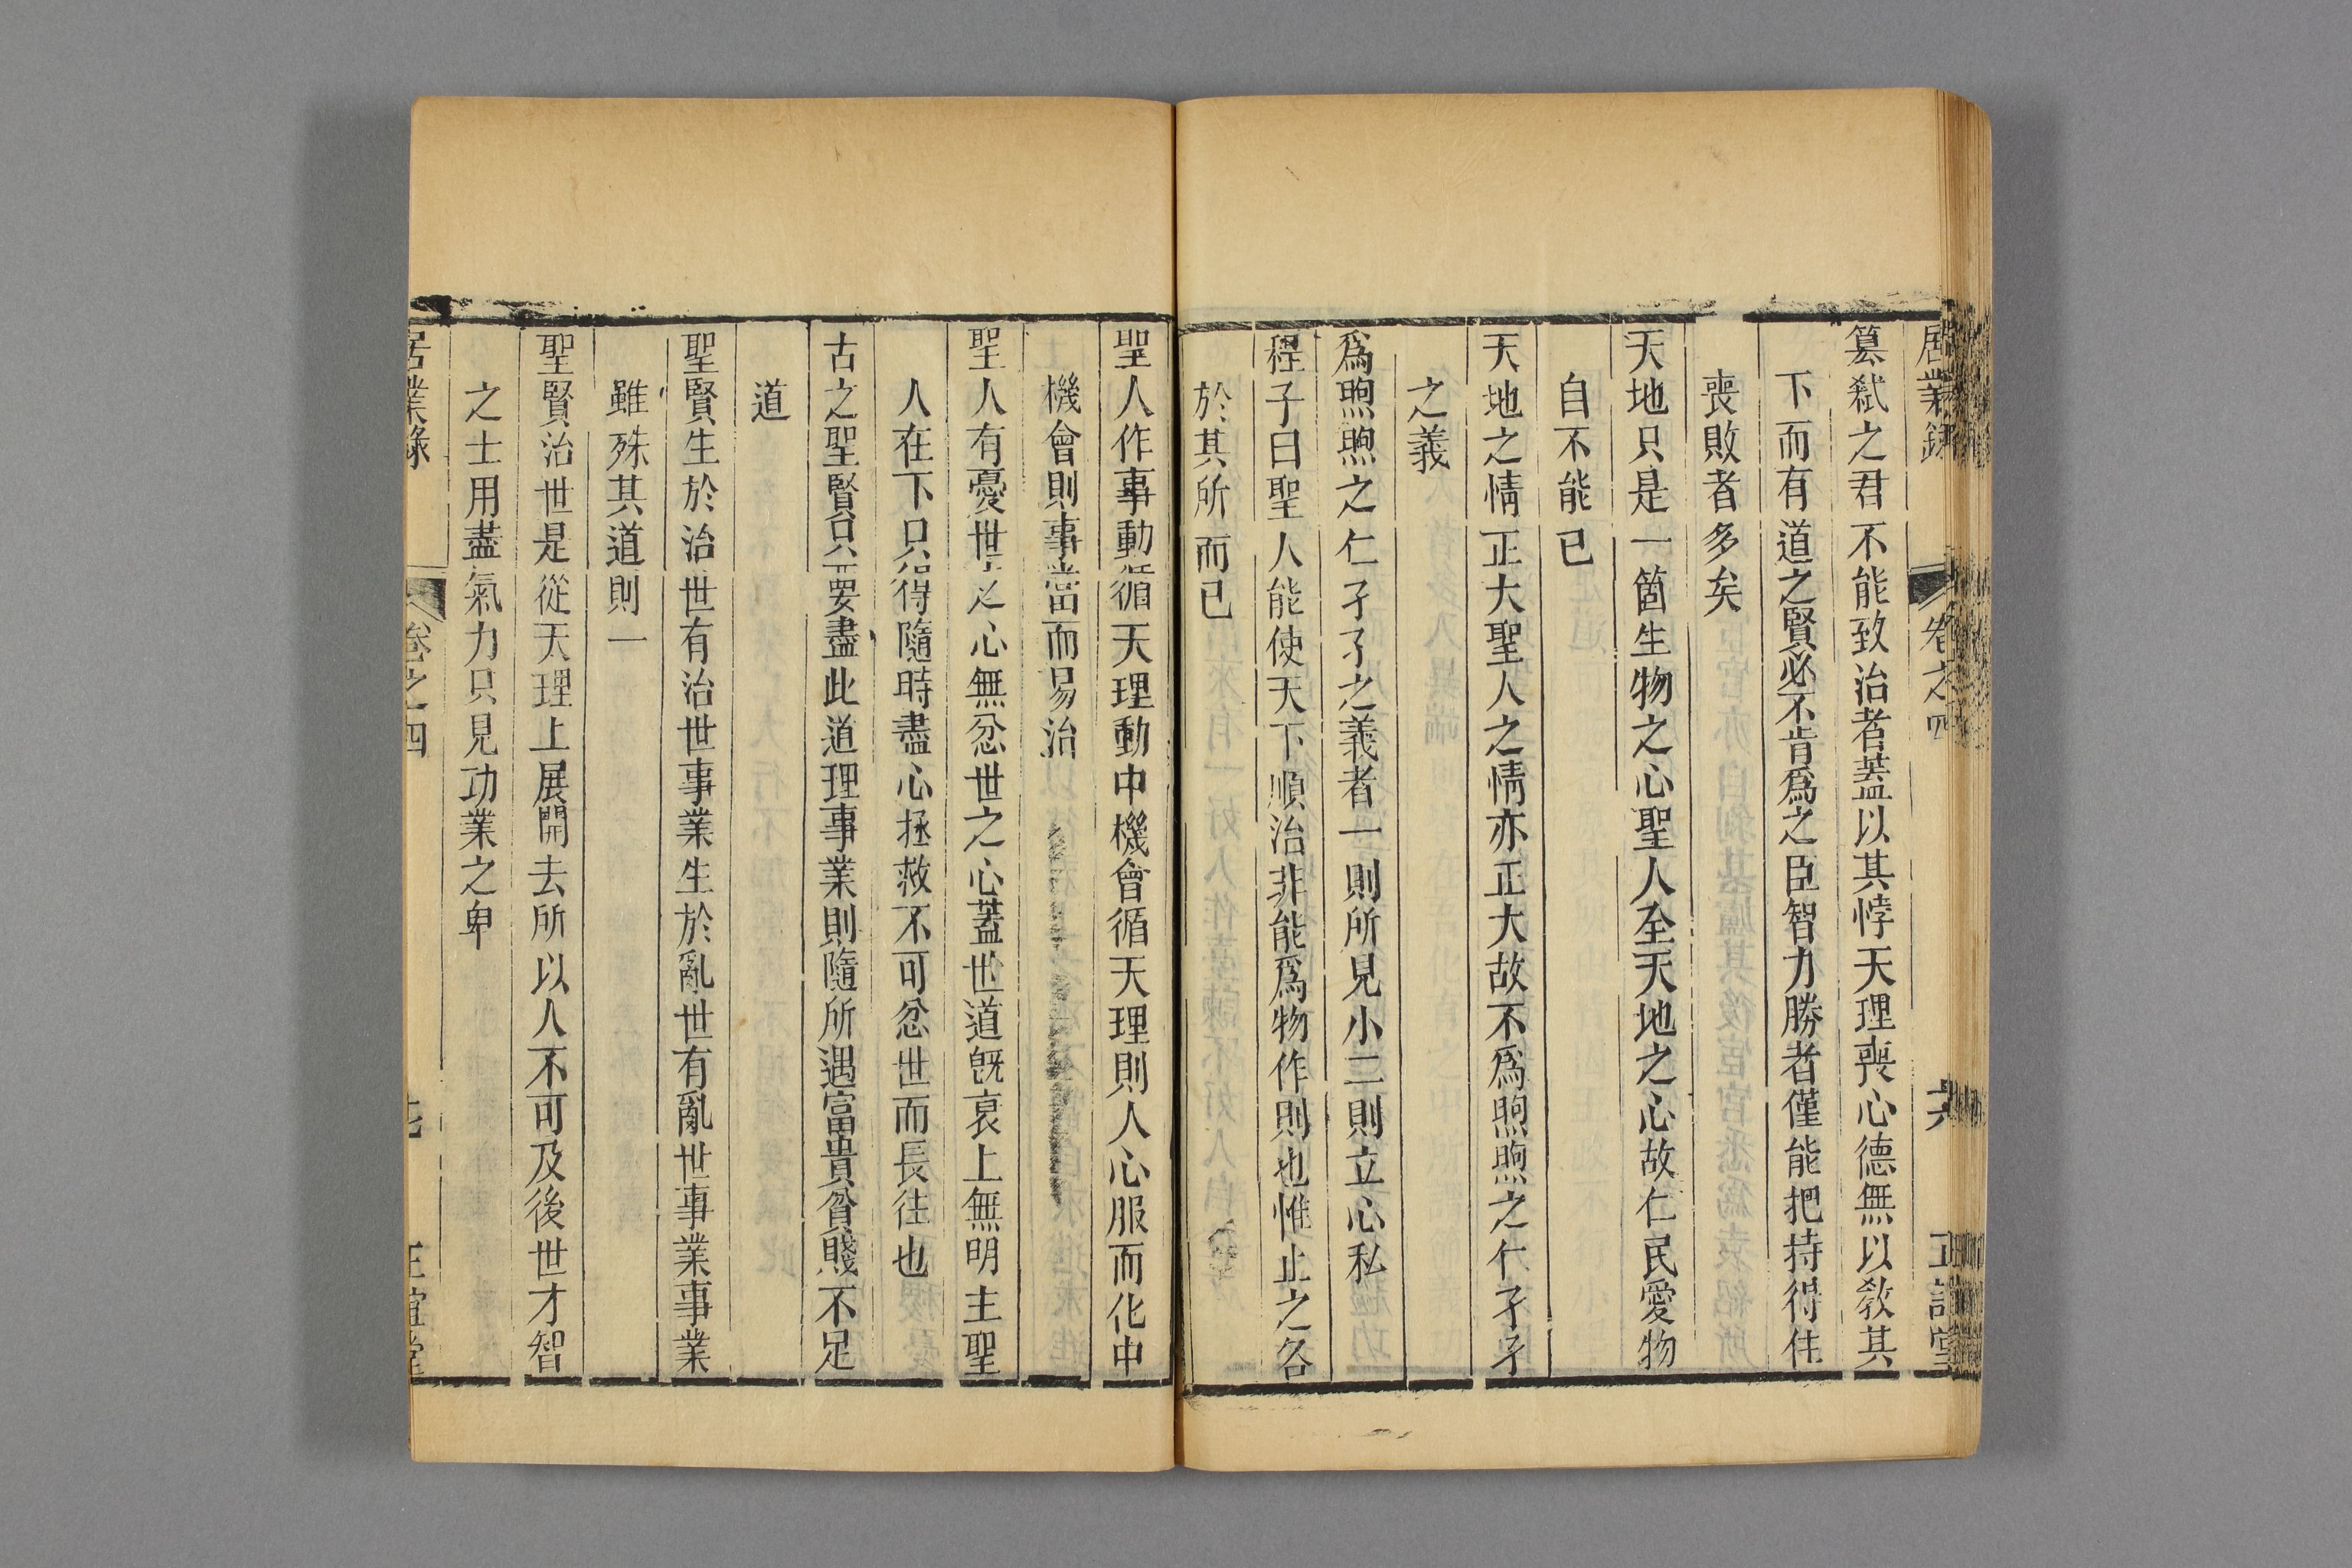 居業錄 卷之四 六 正誼堂
篡弑之君不能致治者蓋以其悖天理喪心德無以教其
下而有道之賢必不肯爲之臣智力勝者僅能把持得住
喪敗者多矣
天地只是一箇生物之心聖人至天地之心故仁民愛物
自不能已
天地之情正大聖人之情亦正大故不爲煦煦之仁孑孑
之義
爲煦煦之仁孑孑之義者一則所見小二則立心私
程子曰聖人能使天下順治非能爲物作則也惟止之各
於其所而已
聖人作事動循天理動中機會循天理則人心服而化中
機會則事當而易治
聖人有憂世之心無忿世之心蓋世道旣衰上無明主聖
人在下只得隨時盡心拯救不可忿世而長往也
古之聖賢只要盡此道理事業則隨所遇富貴貧賤不足
道
聖賢生於治世有治世事業生於亂世有亂世事業事業
雖殊其道則一
聖賢治世是從天理上展開去所以人不可及後世才智
之士用盡氣力只見功業之卑
居業錄 卷之四 正誼堂